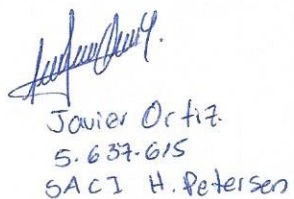 Javier Ortiz.
5.637.615
SACI H. Petersen